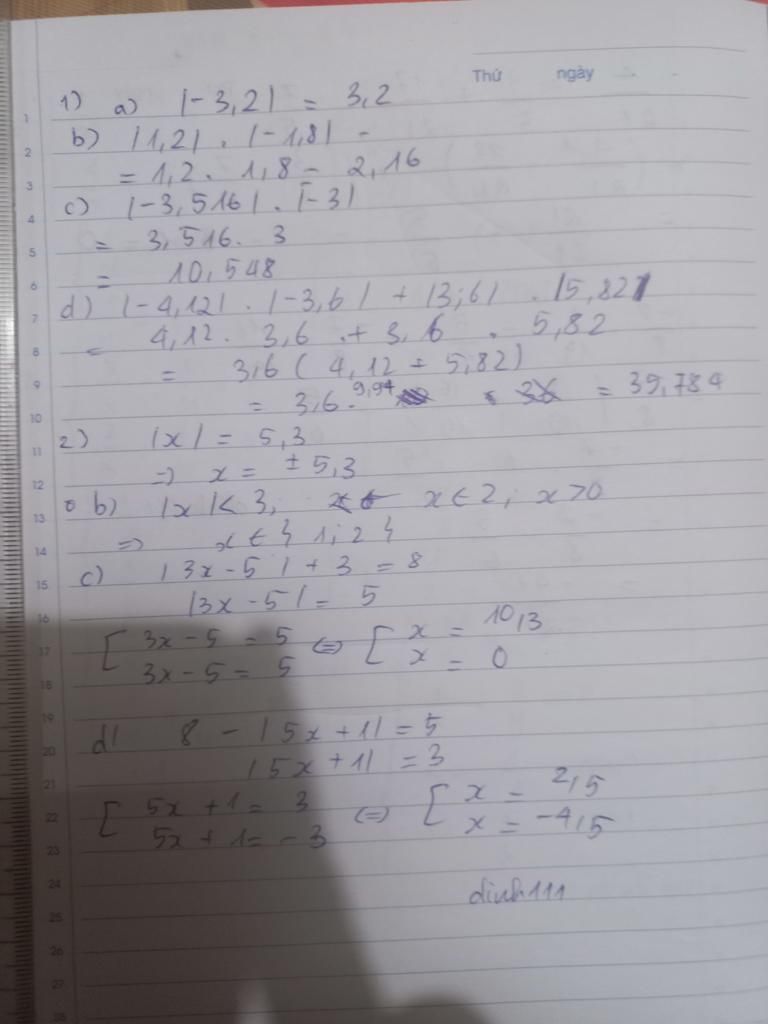 Thứ ngày
1) a) |-3,2| = 3,2
b) |1,2| . |-1,8| =
= 1,2 . 1,8 = 2,16
c) |-3,516| . |-3|
= 3,516 . 3
= 10,548
d) |-4,12| . |-3,6| + |3,6| . |5,82|
= 4,12 . 3,6 + 3,6 . 5,82
= 3,6 ( 4,12 + 5,82)
= 3,6 . 9,94 = 39,784
2) |x| = 5,3
=> x = ±5,3
b) |x| < 3, x ∈ Z, x > 0
=> x ∈ { 1; 2 }
c) | 3x - 5 | + 3 = 8
|3x - 5| = 5
[ 3x - 5 = 5 <=> [ x = 10/3
3x - 5 = 5 x = 0
d/ 8 - | 5x + 1| = 5
| 5x + 1| = 3
[ 5x + 1 = 3 <=> [ x = 2/5
5x + 1 = -3 x = -4/5
dinh111
1
2
3
4
5
6
7
8
9
10
11
12
13
14
15
16
17
18
19
20
21
22
23
24
25
26
27
28